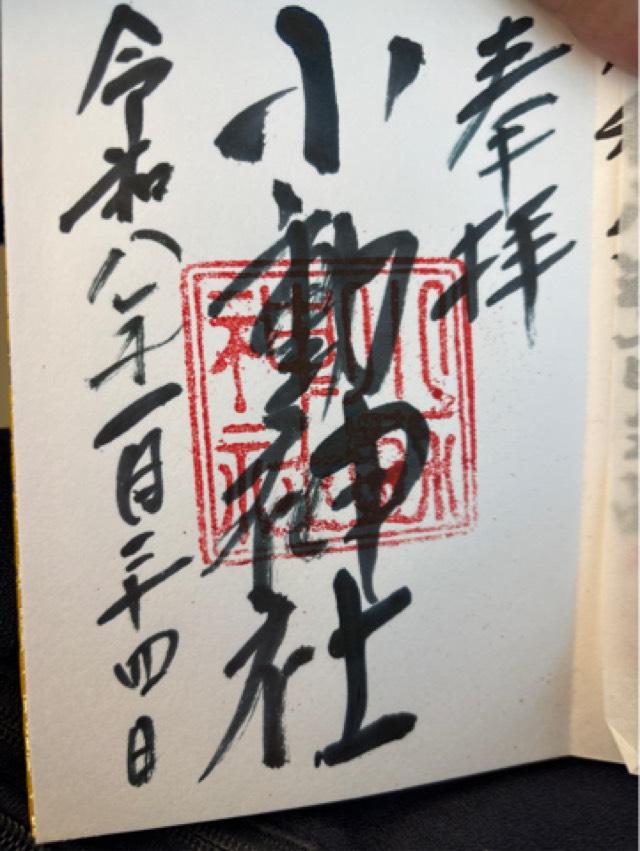 奉拝
小動神社
令和八年一月二十四日